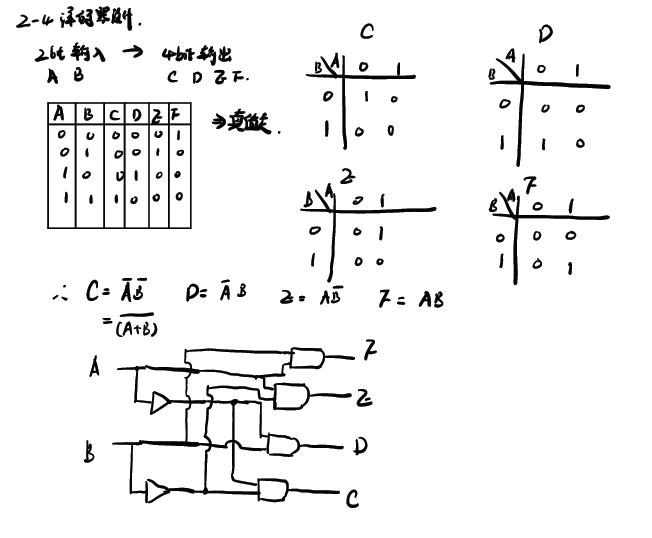 2-4 译码器件.
2bit 输入 → 4bit 输出
A B C D Z F.
A B C D Z F
0 0 0 0 0 1
0 1 0 0 1 0
1 0 0 1 0 0
1 1 1 0 0 0
⇒真值表.
C
B A 0 1
0 1 0
1 0 0
D
B A 0 1
0 0 0
1 1 0
Z
B A 0 1
0 0 1
1 0 0
F
B A 0 1
0 0 0
1 0 1
∴ C = A̅ B̅ D = A̅ B Z = A B̅ F = AB
= \overline{(A+B)}
A
B
F
Z
D
C